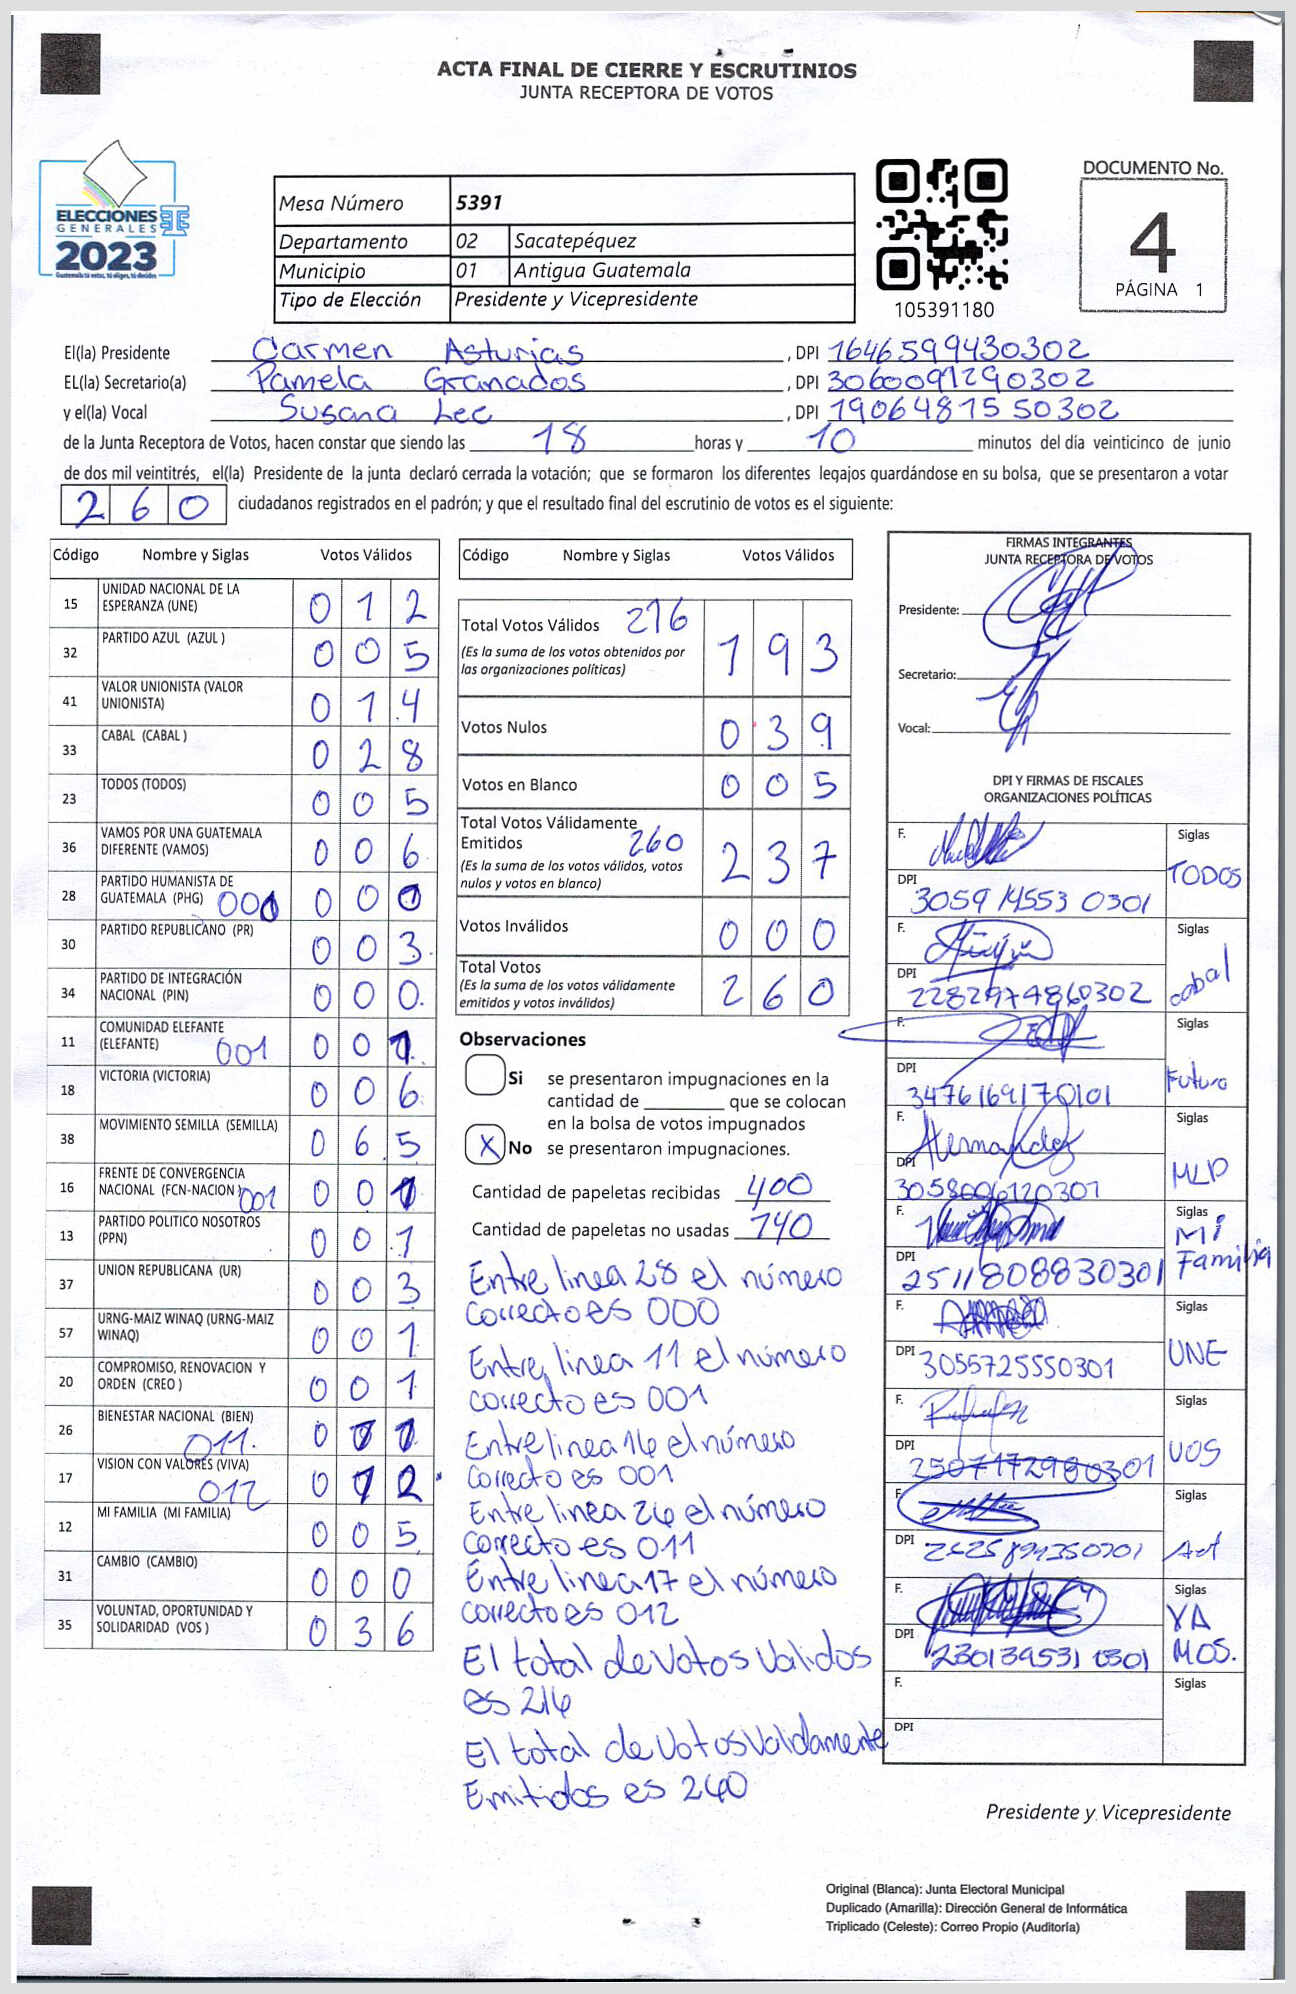 ACTA FINAL DE CIERRE Y ESCRUTINIOS
JUNTA RECEPTORA DE VOTOS
ELECCIONES
GENERALES
2023
Guatemala tú votas, tú eliges, tú decides
Mesa Número 5391
Departamento 02 Sacatepéquez
Municipio 01 Antigua Guatemala
Tipo de Elección Presidente y Vicepresidente
105391180
DOCUMENTO No.
4
PÁGINA 1
El(la) Presidente Carmen Asturias , DPI 1646599430302
EL(la) Secretario(a) Pamela Granados , DPI 3060091290302
y el(la) Vocal Susana Lee , DPI 1906481550302
de la Junta Receptora de Votos, hacen constar que siendo las 18 horas y 10 minutos del día veinticinco de junio
de dos mil veintitrés, el(la) Presidente de la junta declaró cerrada la votación; que se formaron los diferentes legajos guardándose en su bolsa, que se presentaron a votar
260 ciudadanos registrados en el padrón; y que el resultado final del escrutinio de votos es el siguiente:
Código Nombre y Siglas Votos Válidos
15 UNIDAD NACIONAL DE LA ESPERANZA (UNE) 012
32 PARTIDO AZUL (AZUL ) 005
41 VALOR UNIONISTA (VALOR UNIONISTA) 014
33 CABAL (CABAL ) 028
23 TODOS (TODOS) 005
36 VAMOS POR UNA GUATEMALA DIFERENTE (VAMOS) 006
28 PARTIDO HUMANISTA DE GUATEMALA (PHG) 000 000
30 PARTIDO REPUBLICANO (PR) 003
34 PARTIDO DE INTEGRACIÓN NACIONAL (PIN) 000
11 COMUNIDAD ELEFANTE (ELEFANTE) 001 001
18 VICTORIA (VICTORIA) 006
38 MOVIMIENTO SEMILLA (SEMILLA) 065
16 FRENTE DE CONVERGENCIA NACIONAL (FCN-NACION) 001 001
13 PARTIDO POLITICO NOSOTROS (PPN) 001
37 UNION REPUBLICANA (UR) 003
57 URNG-MAIZ WINAQ (URNG-MAIZ WINAQ) 001
20 COMPROMISO, RENOVACION Y ORDEN (CREO ) 001
26 BIENESTAR NACIONAL (BIEN) 011. 011
17 VISION CON VALORES (VIVA) 012 012
12 MI FAMILIA (MI FAMILIA) 005
31 CAMBIO (CAMBIO) 000
35 VOLUNTAD, OPORTUNIDAD Y SOLIDARIDAD (VOS ) 036
Código Nombre y Siglas Votos Válidos
Total Votos Válidos 216 193
(Es la suma de los votos obtenidos por
las organizaciones políticas)
Votos Nulos 039
Votos en Blanco 005
Total Votos Válidamente
Emitidos 260 237
(Es la suma de los votos válidos, votos
nulos y votos en blanco)
Votos Inválidos 000
Total Votos 260
(Es la suma de los votos válidamente
emitidos y votos inválidos)
Observaciones
Si se presentaron impugnaciones en la
cantidad de ________ que se colocan
en la bolsa de votos impugnados
X No se presentaron impugnaciones.
Cantidad de papeletas recibidas 400
Cantidad de papeletas no usadas 140
Entre linea 28 el número
correcto es 000
Entre linea 11 el número
correcto es 001
Entre linea 16 el número
correcto es 001
Entre linea 26 el número
correcto es 011
Entre linea 17 el número
correcto es 012
El total de votos validos
es 216
El total de votos validamente
Emitidos es 260
FIRMAS INTEGRANTES
JUNTA RECEPTORA DE VOTOS
Presidente:
Secretario:
Vocal:
DPI Y FIRMAS DE FISCALES
ORGANIZACIONES POLÍTICAS
F. Siglas
TODOS
DPI 3059 14553 0301
F. Siglas
cabal
DPI 2282974860302
F. Siglas
Futuro
DPI 3476169170101
F. Hernandez Siglas
MLP
DPI 3058006120301
F. Siglas
Mi
Familia
DPI 2511808830301
F. Siglas
UNE
DPI 3055725550301
F. Siglas
VOS
DPI 2507172980301
F. Siglas
DPI
F. Siglas
VA
MOS.
DPI 2301395310301
F. Siglas
DPI
Presidente y Vicepresidente
Original (Blanca): Junta Electoral Municipal
Duplicado (Amarilla): Dirección General de Informática
Triplicado (Celeste): Correo Propio (Auditoría)